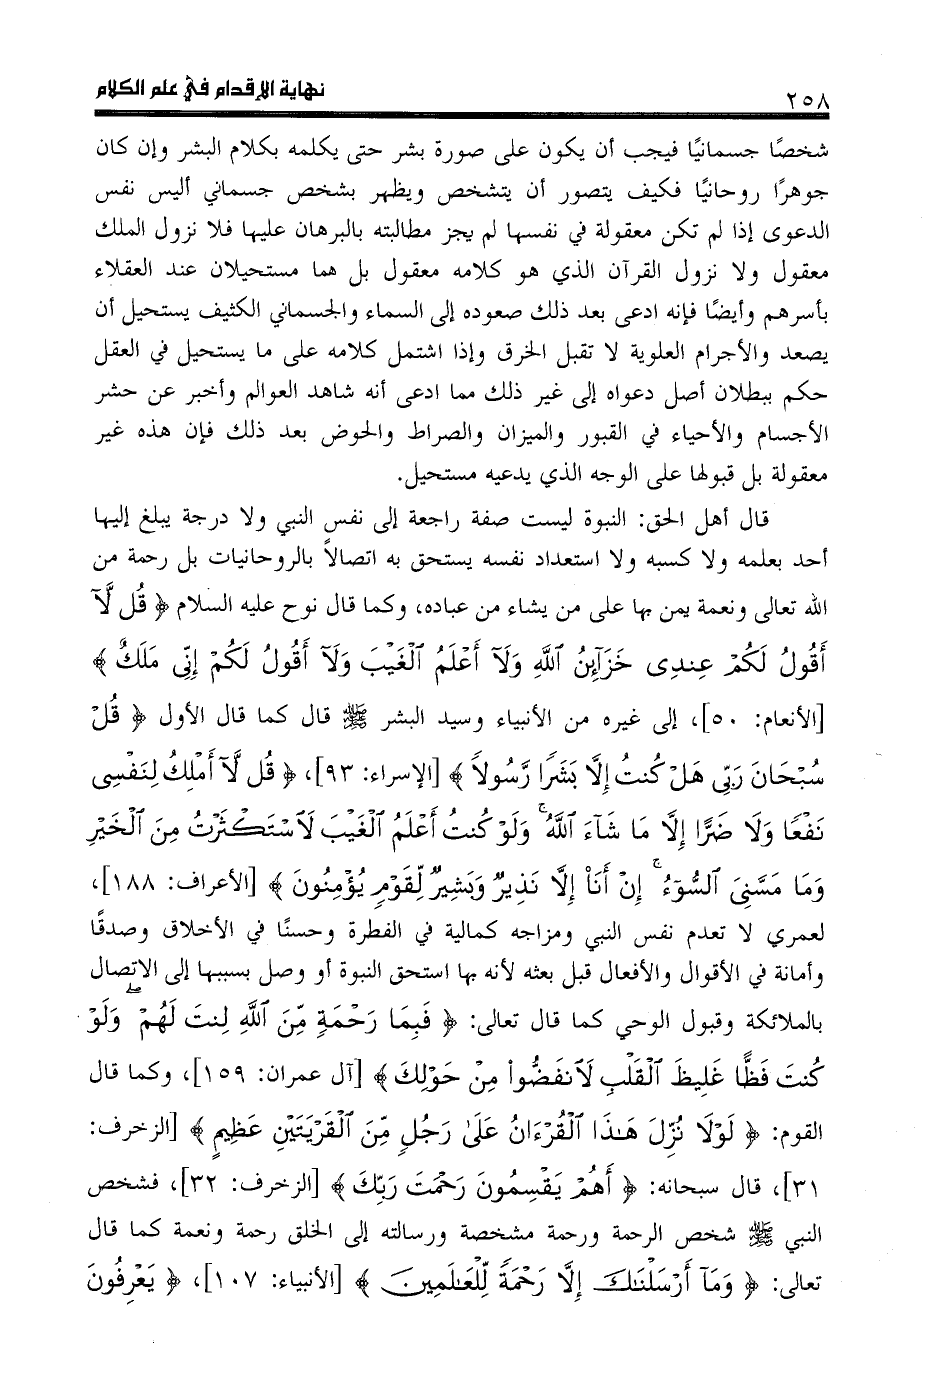 ٢٥٨ نهاية الإقدام في علم الكلام
شخصًا جسمانيًا فيجب أن يكون على صورة بشر حتى يكلمه بكلام البشر وإن كان
جوهرًا روحانيًا فكيف يتصور أن يتشخص ويظهر بشخص جسماني أليس نفس
الدعوى إذا لم تكن معقولة في نفسها لم يجز مطالبته بالبرهان عليها فلا نزول الملك
معقول ولا نزول القرآن الذي هو كلامه معقول بل هما مستحيلان عند العقلاء
بأسرهم وأيضًا فإنه ادعى بعد ذلك صعوده إلى السماء والجسماني الكثيف يستحيل أن
يصعد والأجرام العلوية لا تقبل الخرق وإذا اشتمل كلامه على ما يستحيل في العقل
حكم ببطلان أصل دعواه إلى غير ذلك مما ادعى أنه شاهد العوالم وأخبر عن حشر
الأجسام والأحياء في القبور والميزان والصراط والحوض بعد ذلك فإن هذه غير
معقولة بل قبولها على الوجه الذي يدعيه مستحيل.
قال أهل الحق: النبوة ليست صفة راجعة إلى نفس النبي ولا درجة يبلغ إليها
أحد بعلمه ولا كسبه ولا استعداد نفسه يستحق به اتصالاً بالروحانيات بل رحمة من
الله تعالى ونعمة يمن بها على من يشاء من عباده، وكما قال نوح عليه السلام ﴿ قُل لَّآ
أَقُولُ لَكُمْ عِندِى خَزَآئِنُ ٱللَّهِ وَلَآ أَعْلَمُ ٱلْغَيْبَ وَلَآ أَقُولُ لَكُمْ إِنِّى مَلَكٌ ﴾
[الأنعام: ٥٠]، إلى غيره من الأنبياء وسيد البشر ﷺ قال كما قال الأول ﴿ قُلْ
سُبْحَانَ رَبِّى هَلْ كُنتُ إِلَّا بَشَرًا رَّسُولاً ﴾ [الإسراء: ٩٣]، ﴿ قُل لَّآ أَمْلِكُ لِنَفْسِى
نَفْعًا وَلَا ضَرًّا إِلَّا مَا شَآءَ ٱللَّهُ ۚ وَلَوْ كُنتُ أَعْلَمُ ٱلْغَيْبَ لَٱسْتَكْثَرْتُ مِنَ ٱلْخَيْرِ
وَمَا مَسَّنِىَ ٱلسُّوٓءُ ۚ إِنْ أَنَا۠ إِلَّا نَذِيرٌ وَبَشِيرٌ لِّقَوْمٍ يُؤْمِنُونَ ﴾ [الأعراف: ١٨٨]،
لعمري لا تعدم نفس النبي ومزاجه كمالية في الفطرة وحسنًا في الأخلاق وصدقًا
وأمانة في الأقوال والأفعال قبل بعثه لأنه بها استحق النبوة أو وصل بسببها إلى الاتصال
بالملائكة وقبول الوحي كما قال تعالى: ﴿ فَبِمَا رَحْمَةٍ مِّنَ ٱللَّهِ لِنتَ لَهُمْ ۖ وَلَوْ
كُنتَ فَظًّا غَلِيظَ ٱلْقَلْبِ لَٱنفَضُّوا۟ مِنْ حَوْلِكَ ﴾ [آل عمران: ١٥٩]، وكما قال
القوم: ﴿ لَوْلَا نُزِّلَ هَـٰذَا ٱلْقُرْءَانُ عَلَىٰ رَجُلٍ مِّنَ ٱلْقَرْيَتَيْنِ عَظِيمٍ ﴾ [الزخرف:
٣١]، قال سبحانه: ﴿ أَهُمْ يَقْسِمُونَ رَحْمَتَ رَبِّكَ ﴾ [الزخرف: ٣٢]، فشخص
النبي ﷺ شخص الرحمة ورحمة مشخصة ورسالته إلى الخلق رحمة ونعمة كما قال
تعالى: ﴿ وَمَآ أَرْسَلْنَـٰكَ إِلَّا رَحْمَةً لِّلْعَـٰلَمِينَ ﴾ [الأنبياء: ١٠٧]، ﴿ يَعْرِفُونَ